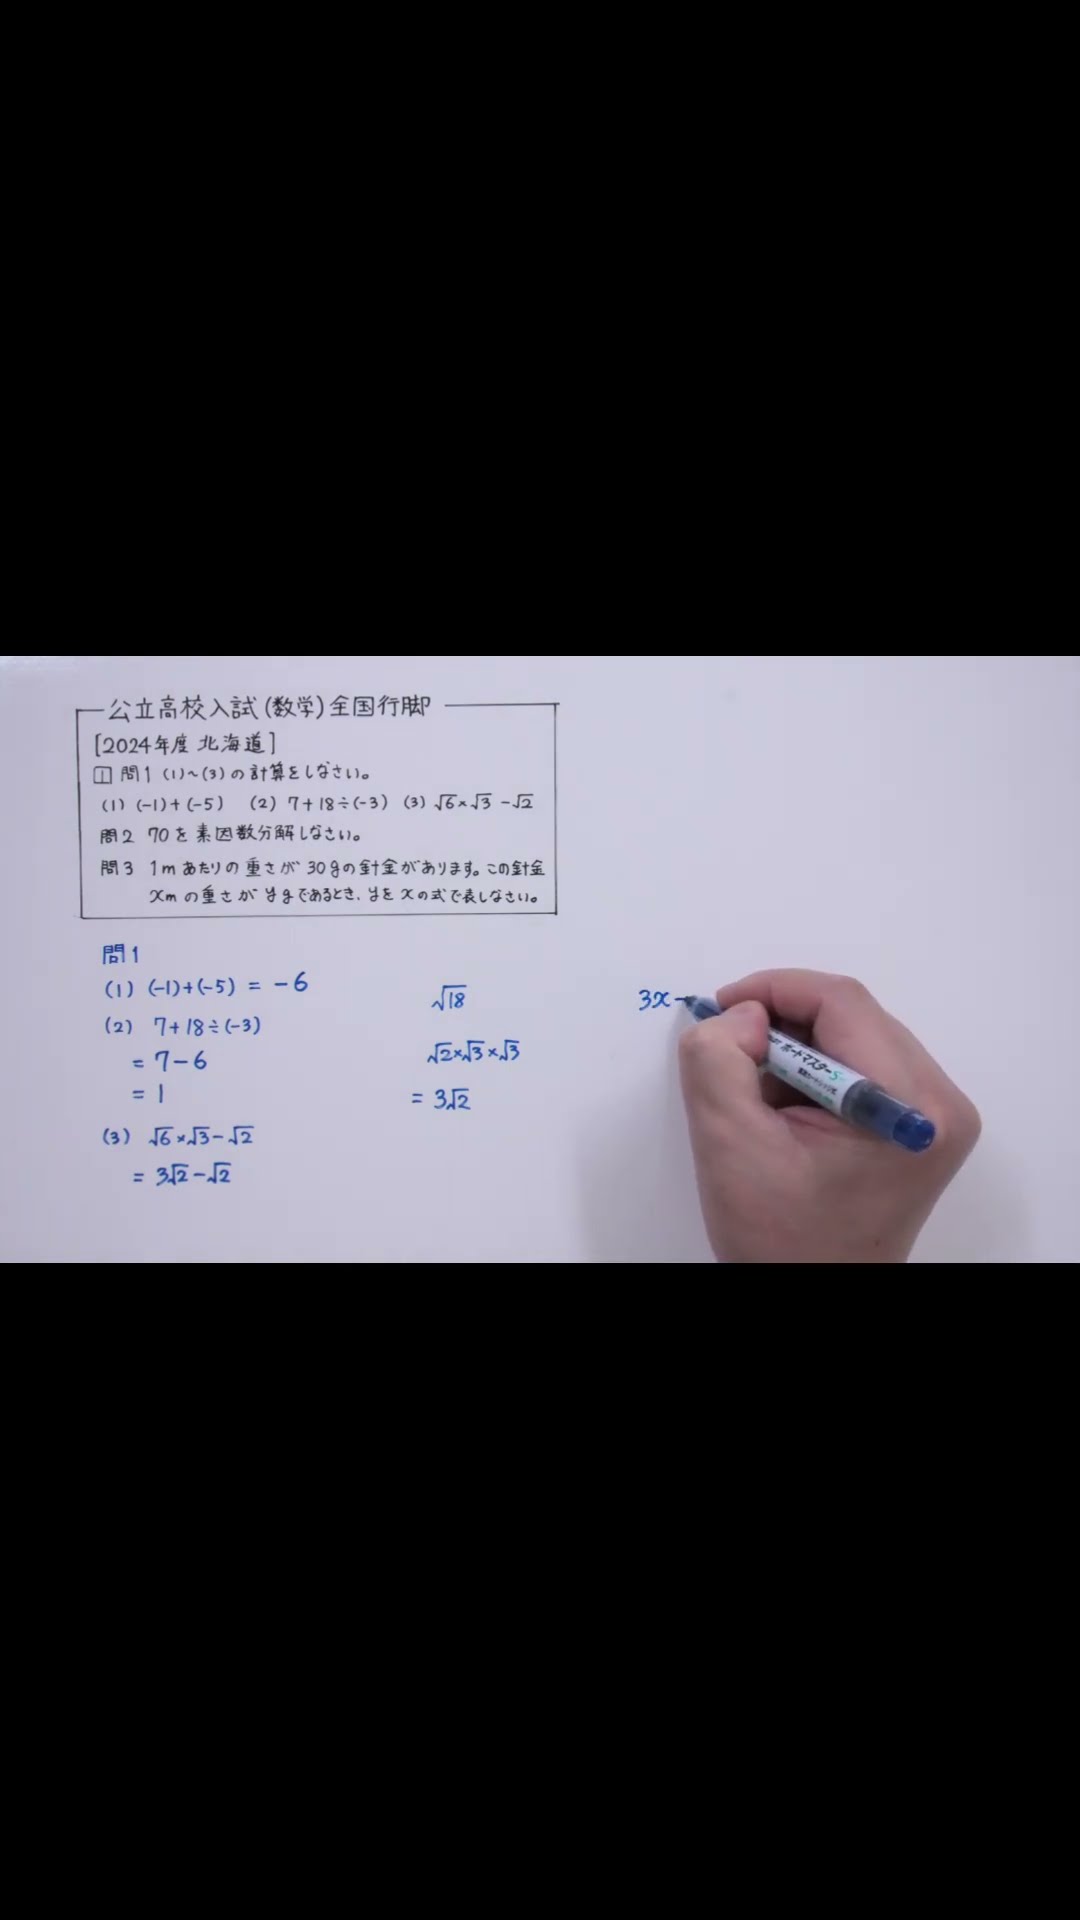 公立高校入試(数学)全国行脚
[2024年度 北海道]
1 問1 (1)~(3)の計算をしなさい。
(1) (-1)+(-5) (2) 7+18÷(-3) (3) √6×√3-√2
問2 70を素因数分解しなさい。
問3 1mあたりの重さが30gの針金があります。この針金
xmの重さがygであるとき、yをxの式で表しなさい。
問1
(1) (-1)+(-5) = -6
(2) 7+18÷(-3)
= 7-6
= 1
(3) √6×√3-√2
= 3√2-√2
√18
√2×√3×√3
= 3√2
3x-
ボードマスターS